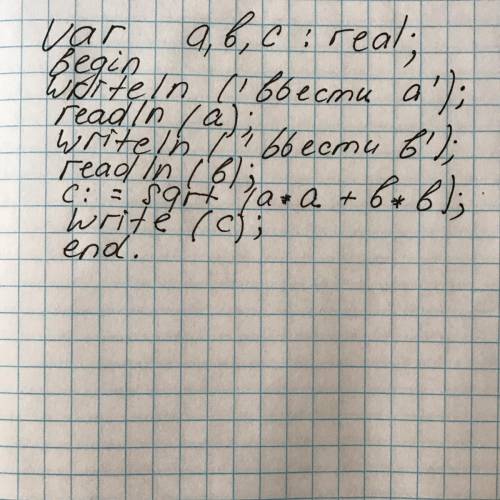 var a, b, c : real;
begin
writeln (' ввести a');
readln (a);
writeln (' ввести b');
readln (b);
c: = sqrt (a * a + b * b);
write (c);
end.